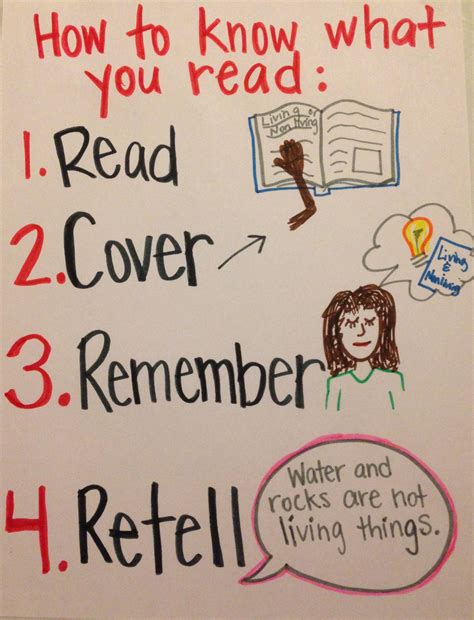 How to know what
you read:
Living or
Non living
1. Read
2. Cover
Living
&
Nonliving
3. Remember
4. Retell
Water and
rocks are not
living things.